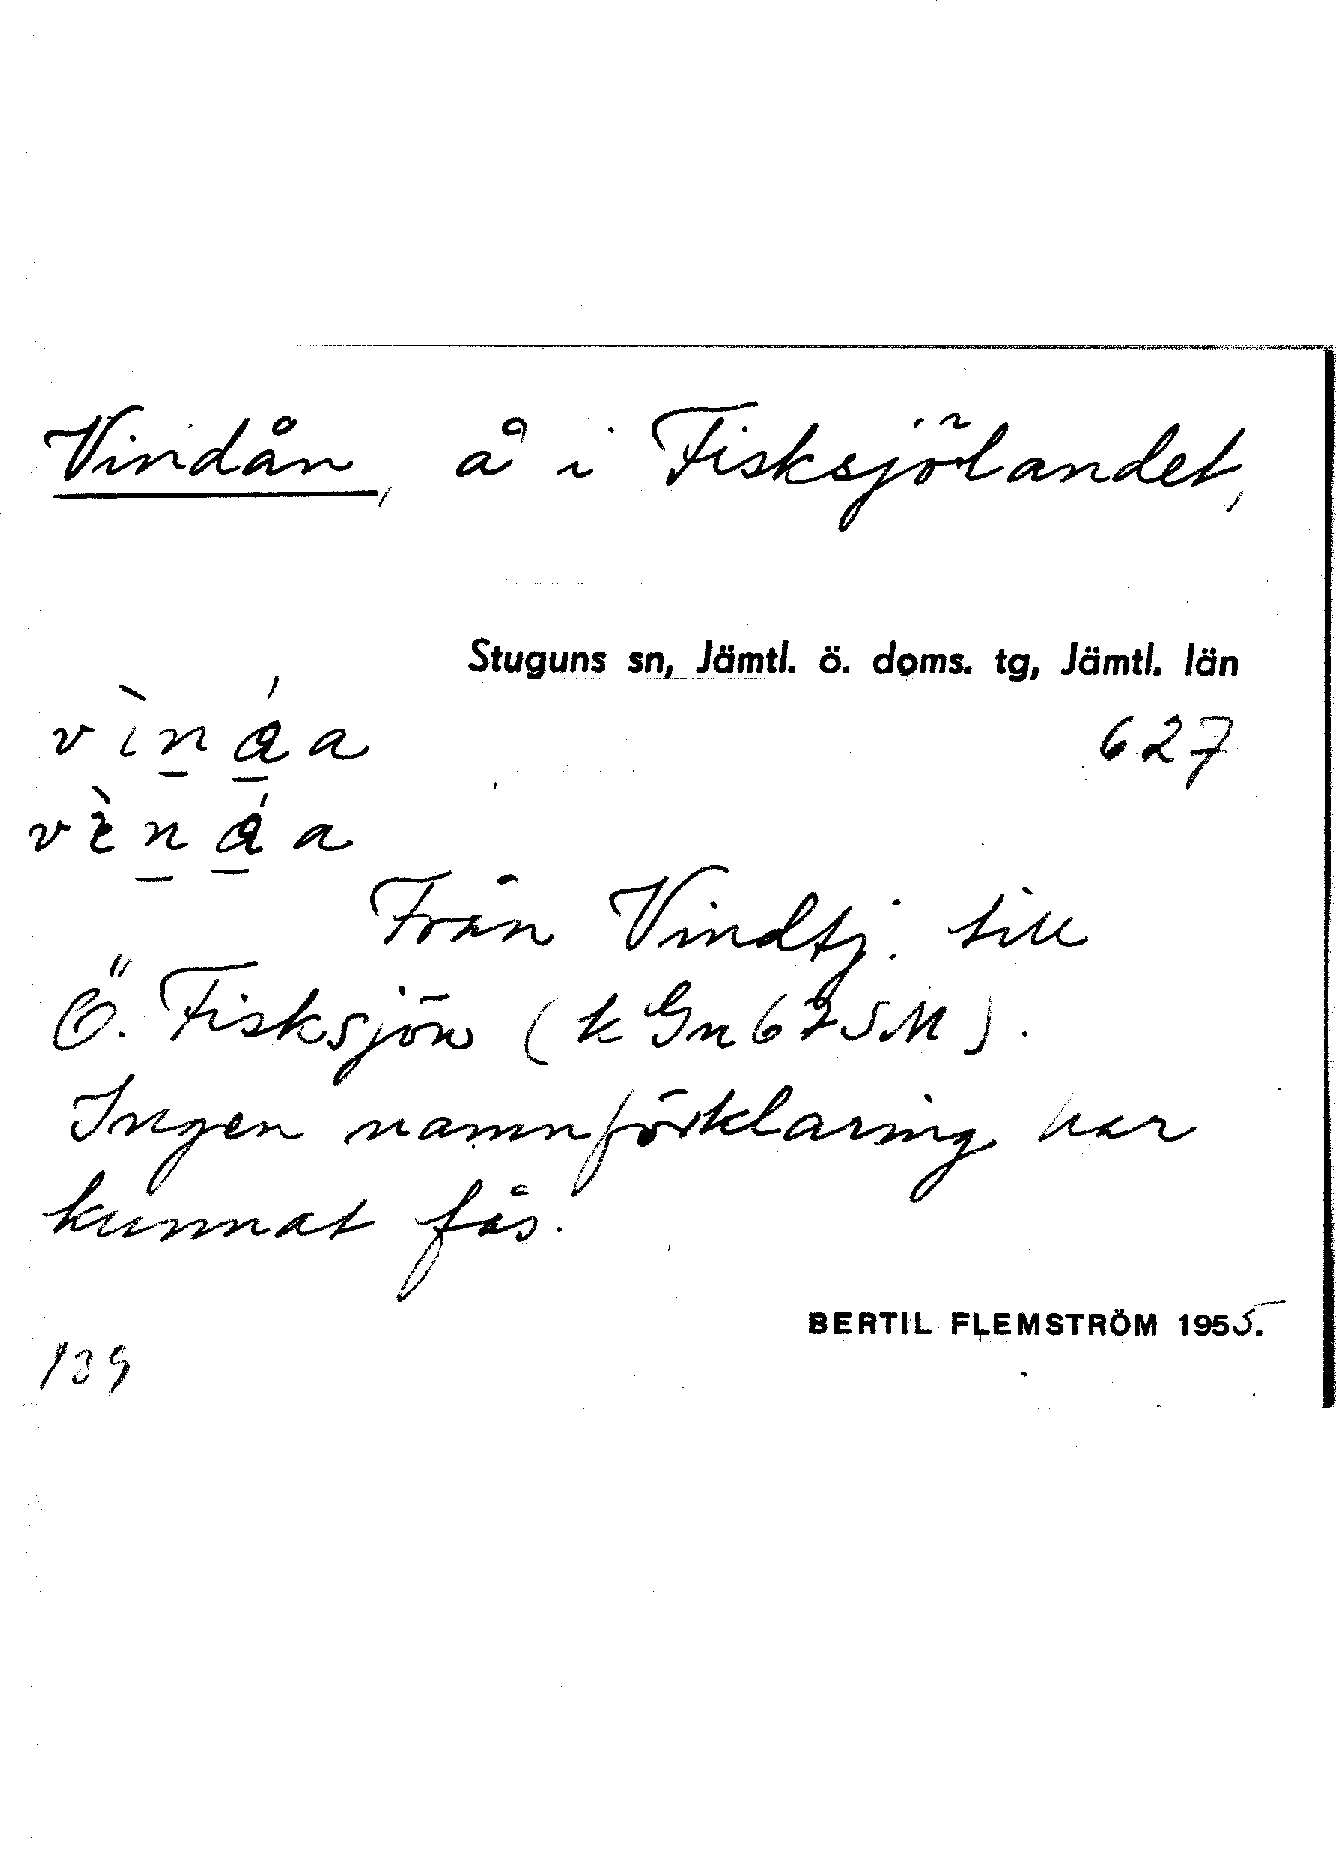 Vindån, å i Fisksjölandet,
Stuguns sn, Jämtl. ö. doms. tg, Jämtl. län
627
Från Vindtj. till
Ö. Fisksjön (k Gn 62 SM).
Ingen namnförklaring har
kunnat fås.
BERTIL FLEMSTRÖM 1955.
139